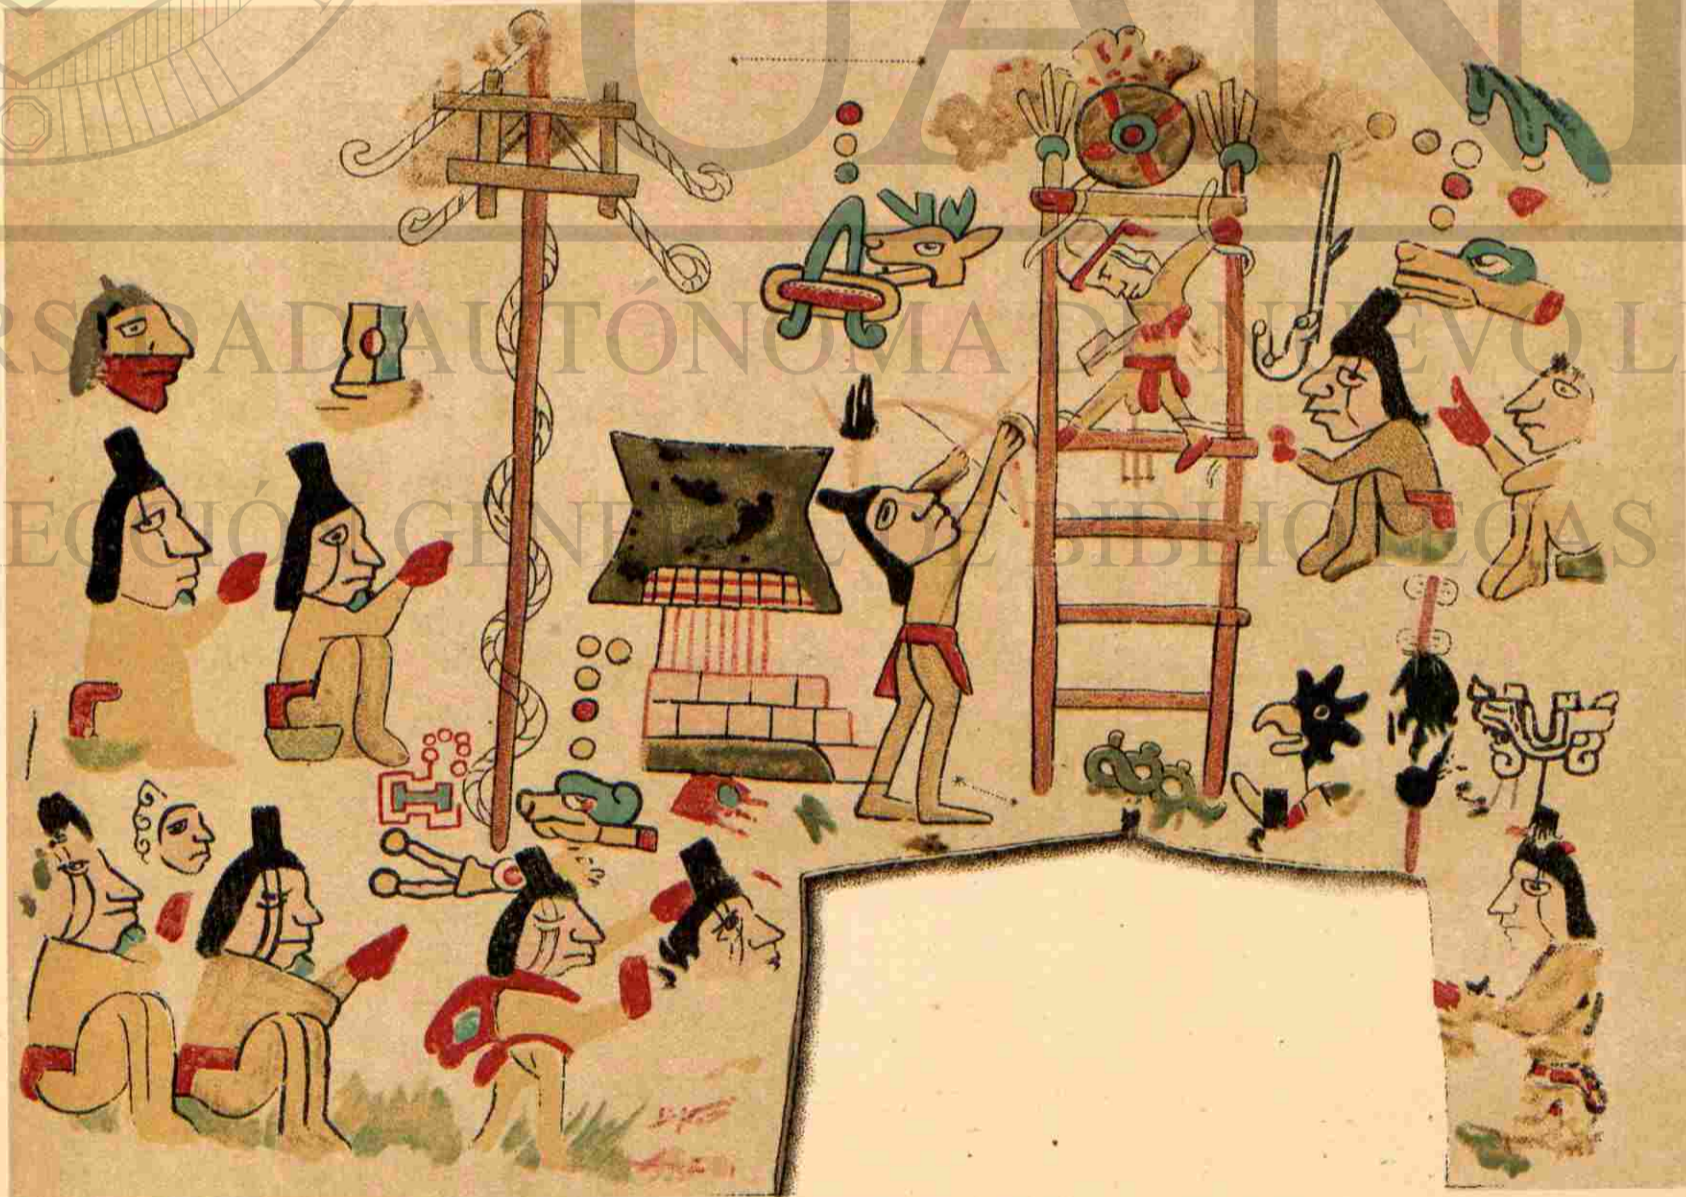 UANL
UNIVERSIDAD AUTÓNOMA DE NUEVO LEÓN
DIRECCIÓN GENERAL DE BIBLIOTECAS